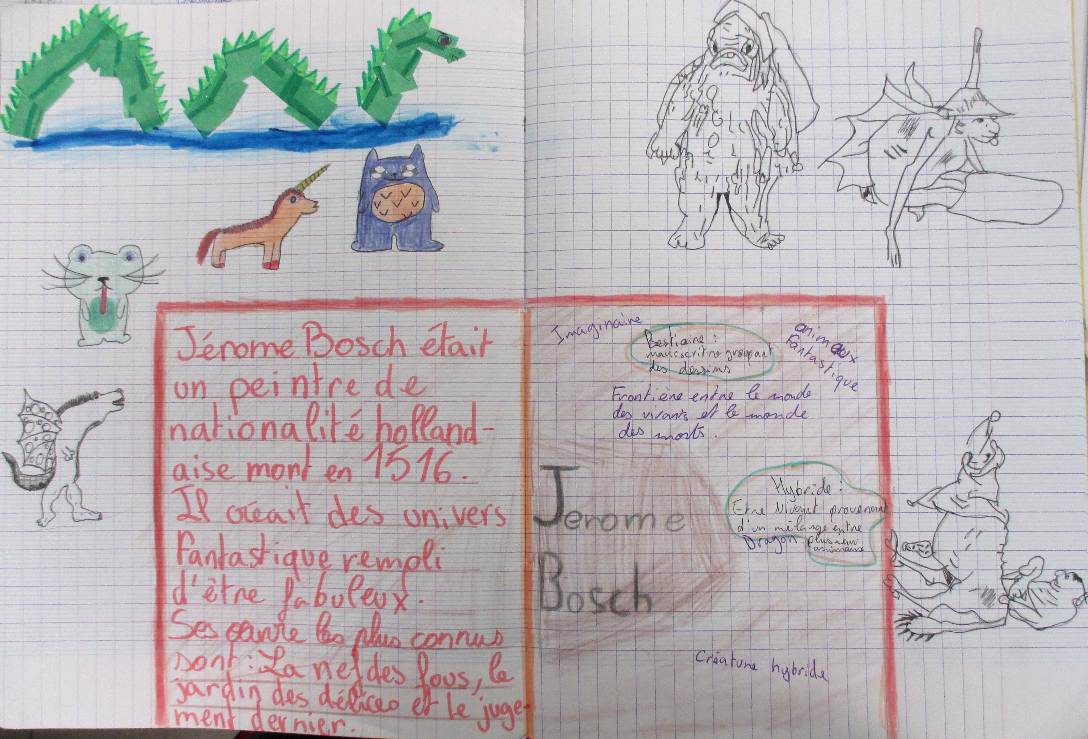 Jérome Bosch était
un peintre de
nationalité holland-
aise mort en 1516.
Il créait des univers
fantastique rempli
d'être fabuleux.
Ses œuvre les plus connus
sont : La nef des fous, le
jardin des délices et le juge-
ment dernier.
Imaginaire
Bestiaire :
des dessins
animaux
fantastique
Frontière entre le monde
des vivants et le monde
des morts.
Jerome
Bosch
Hybride :
Etre Vivant provenant
d'un mélange entre
Dragon plusieur
animaux
Créature hybride